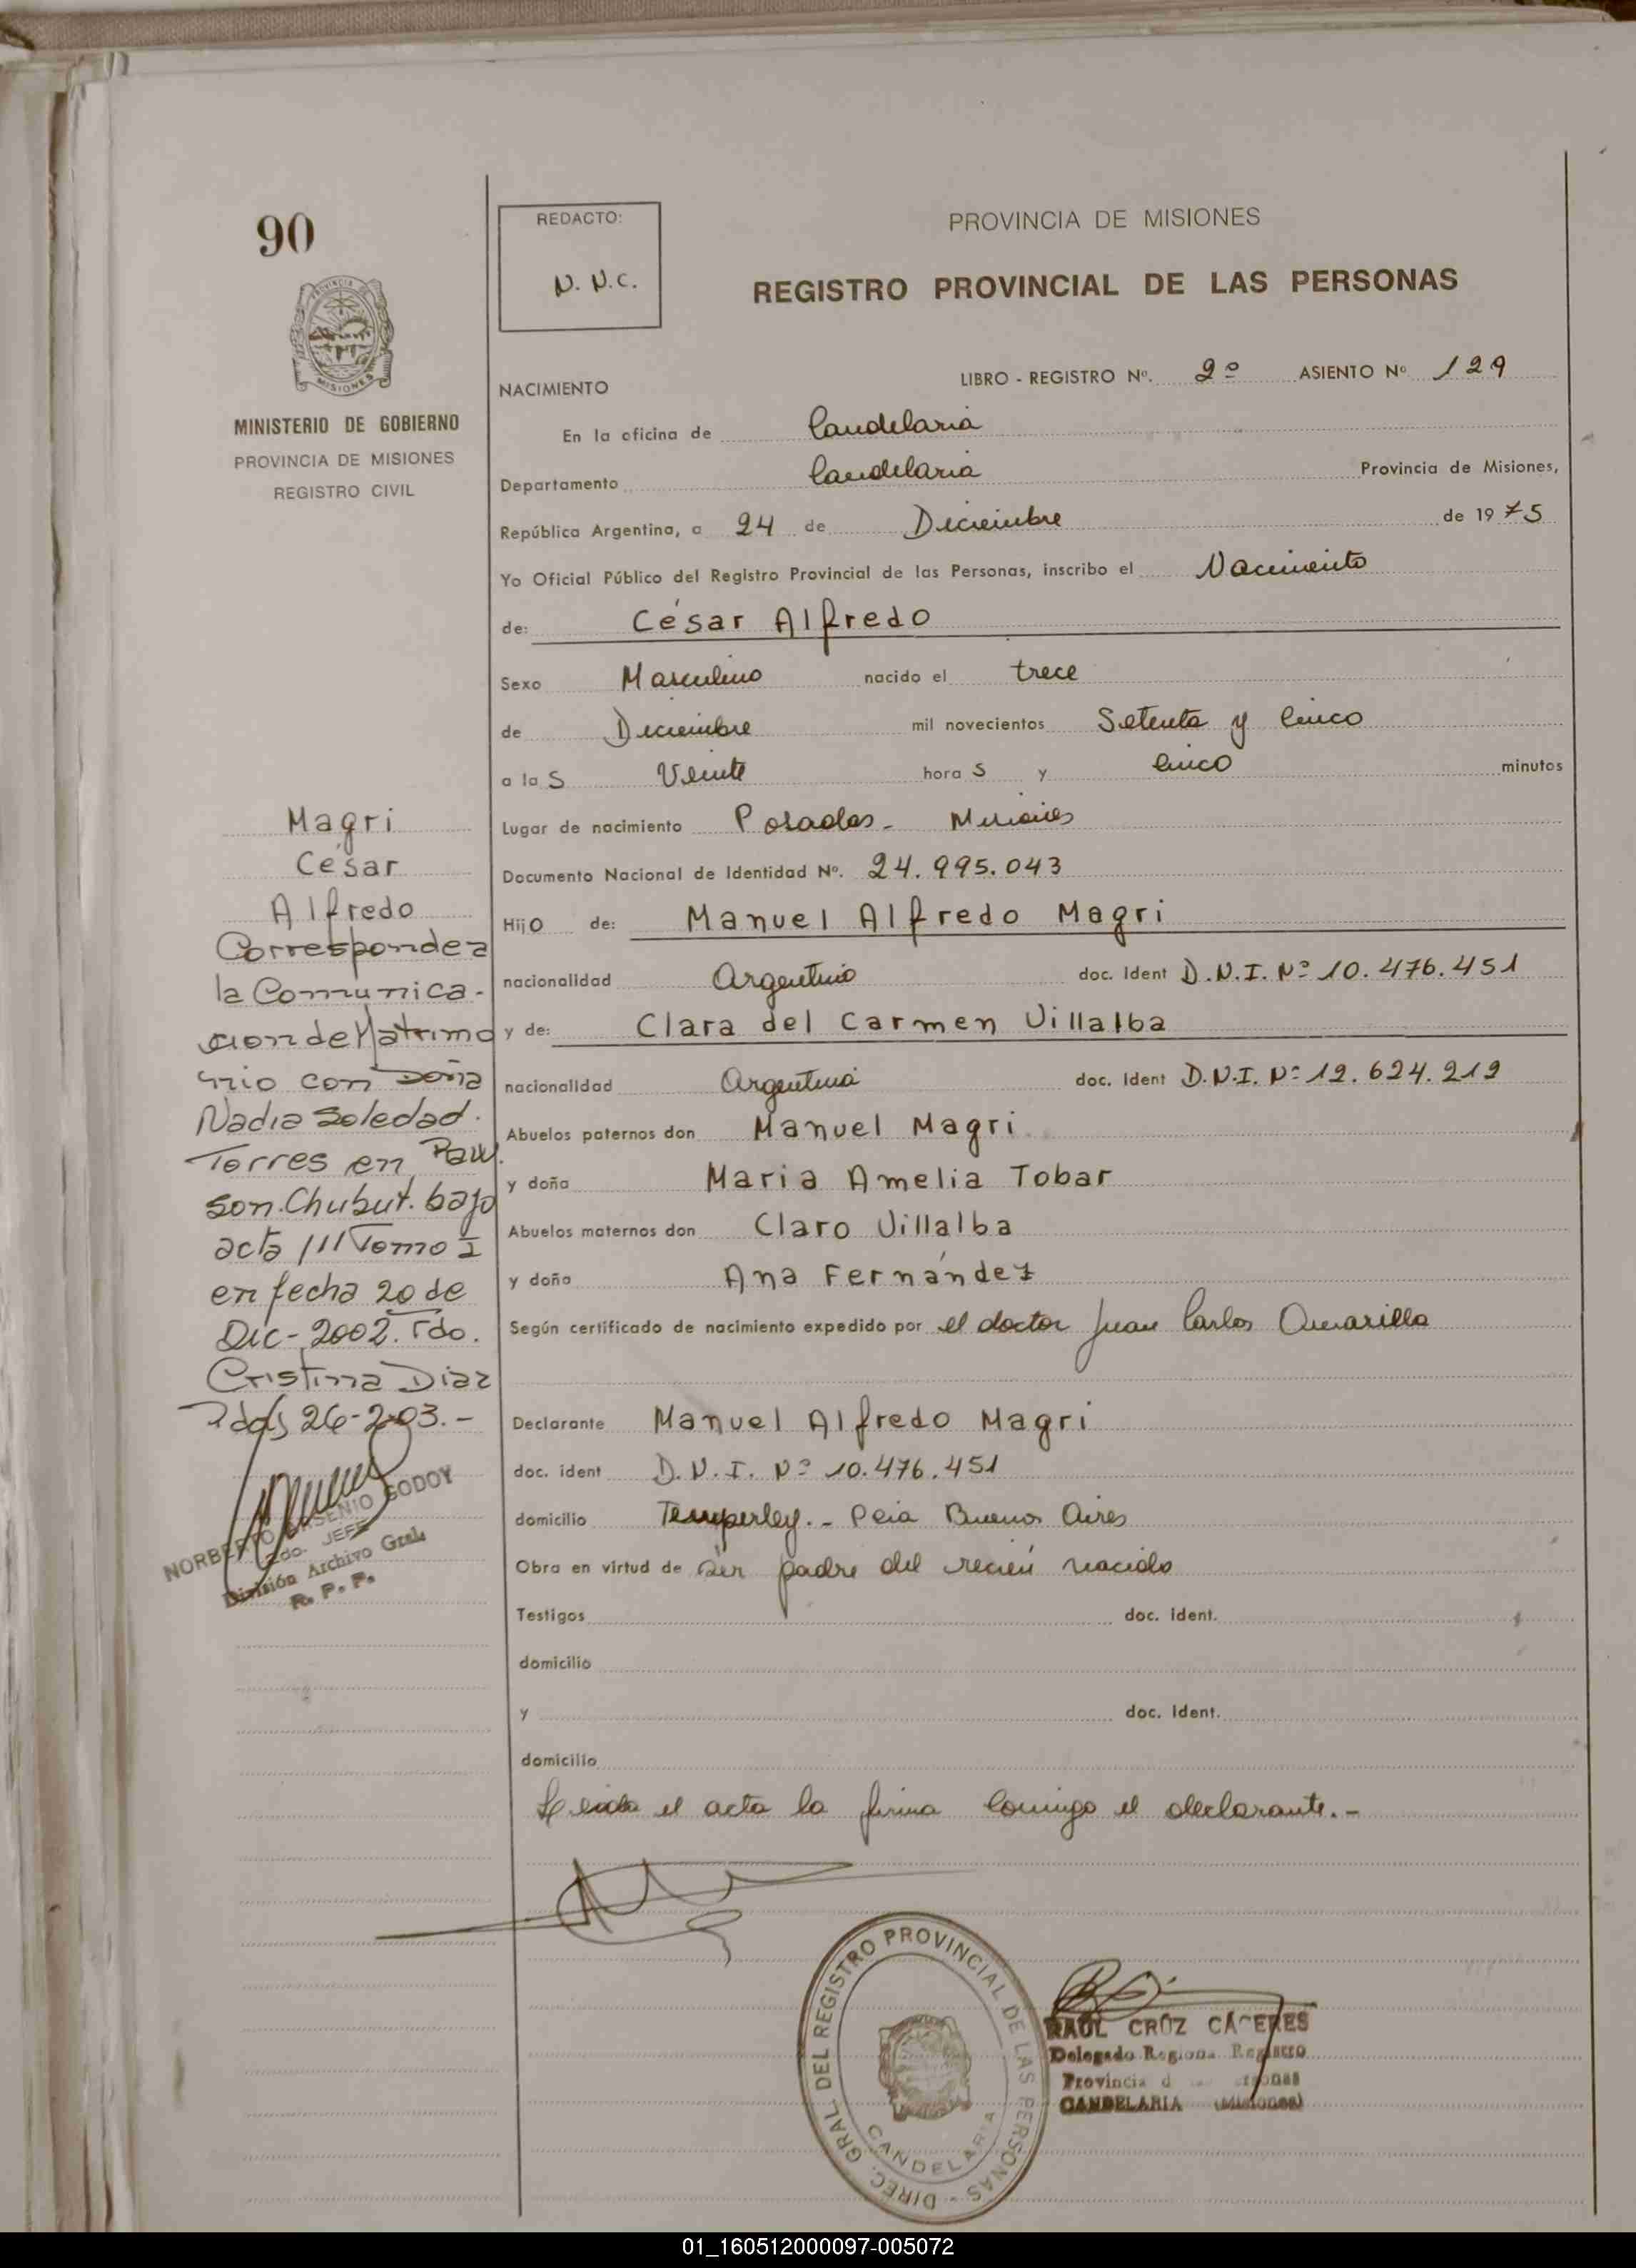 90
REDACTO:
N. N.C.
PROVINCIA DE MISIONES
REGISTRO PROVINCIAL DE LAS PERSONAS
PROVINCIA DE
MISIONES
MINISTERIO DE GOBIERNO
PROVINCIA DE MISIONES
REGISTRO CIVIL
NACIMIENTO
LIBRO - REGISTRO Nº. 2º ASIENTO Nº 129
En la oficina de Candelaria
Departamento Candelaria Provincia de Misiones,
República Argentina, a 24 de Diciembre de 1975
Yo Oficial Público del Registro Provincial de las Personas, inscribo el Nacimiento
de: César Alfredo
Sexo Masculino nacido el trece
de Diciembre mil novecientos Setenta y Cinco
a las Veinte horas y Cinco minutos
Lugar de nacimiento Posadas - Misiones
Documento Nacional de Identidad Nº. 24.995.043
Hijo de: Manuel Alfredo Magri
nacionalidad Argentino doc. Ident D.N.I. Nº 10.476.451
y de: Clara del Carmen Villalba
nacionalidad Argentina doc. Ident D.N.I. Nº 12.624.212
Abuelos paternos don Manuel Magri
y doña Maria Amelia Tobar
Abuelos maternos don Claro Villalba
y doña Ana Fernández
Según certificado de nacimiento expedido por el doctor Juan Carlos Amarilla
Declarante Manuel Alfredo Magri
doc. ident D.N.I. Nº 10.476.451
domicilio Temperley.- Pcia Buenos Aires
Obra en virtud de ser padre del recién nacido
Testigos doc. ident.
domicilio
y doc. Ident.
domicilio
Leida el acta la firma Conmigo el declarante.-
Magri
César
Alfredo
Corresponde a
la Comunica-
cion de Matrimo
nio con Doña
Nadia Soledad.
Torres en Raw
son. Chubut. bajo
acta 111 Tomo I
en fecha 20 de
Dic-2002. Fdo.
Cristina Diaz
Pdas 26-2-03.-
NORBERTO ARSENIO GODOY
JEFE
División Archivo Gral.
R. P. P.
DIREC. GRAL DEL REGISTRO PROVINCIAL DE LAS PERSONAS -
CANDELARIA
RAUL CRUZ CACERES
Delegado Regional Registro
Provincia
CANDELARIA (Misiones)
01_160512000097-005072